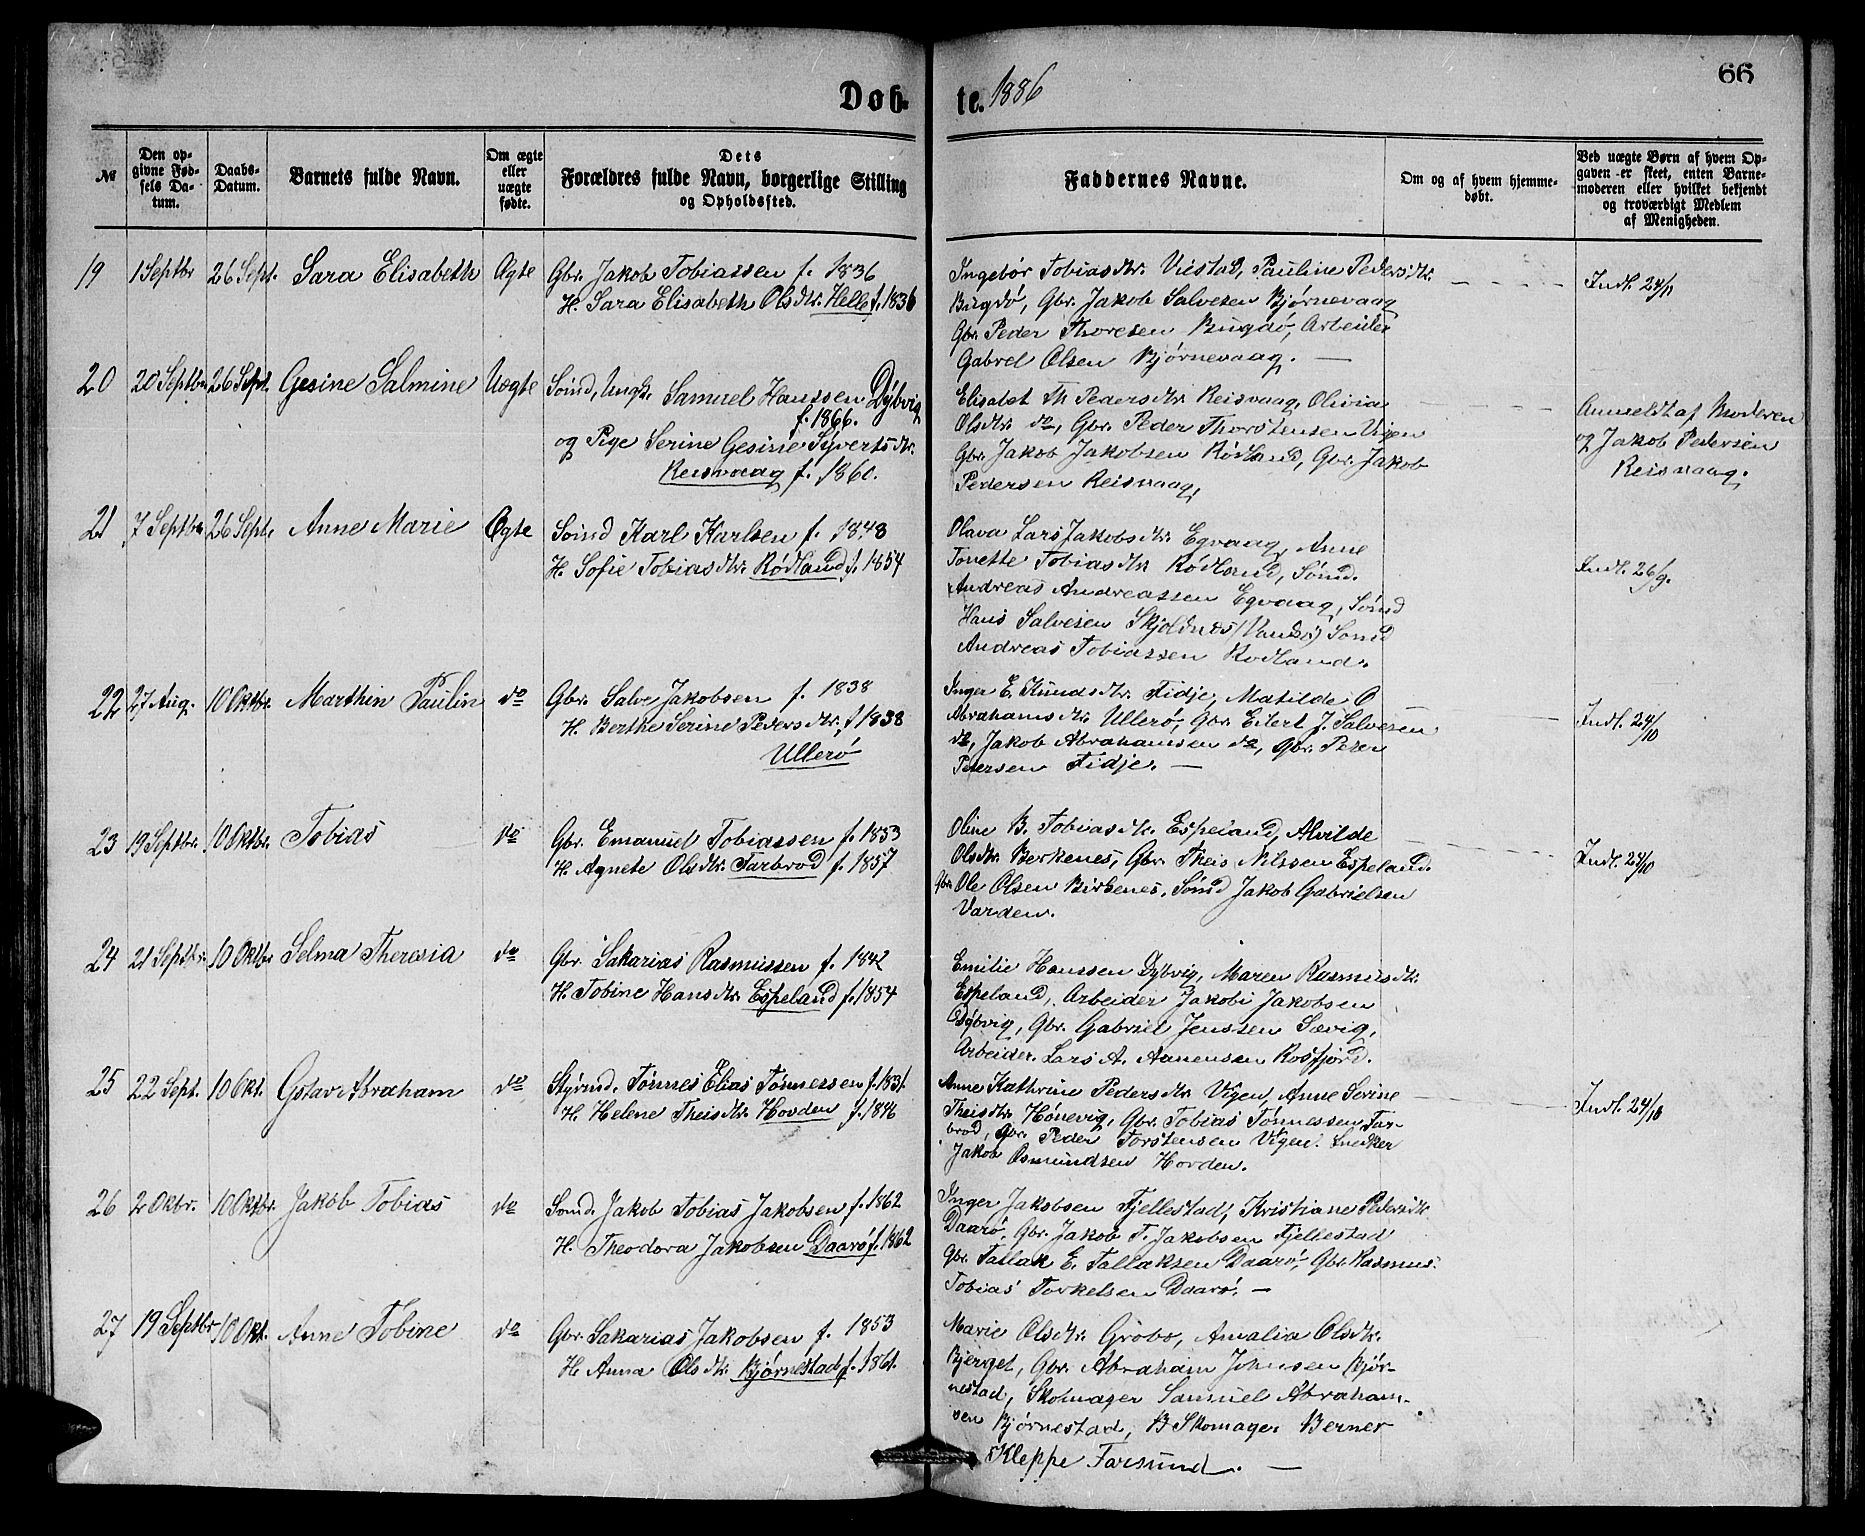 66
Døb-
te. 1886
№
Den op-
givne Fød-
sels Da-
tum.
Daabs-
Datum.
Barnets fulde Navn.
Om ægte
eller
uægte
fødte.
Dets
Forældres fulde Navn, borgerlige Stilling
og Opholdssted.
Faddernes Navne.
Om og af hvem hjemme-
døbt.
Ved uægte Børn af hvem Op-
gaven er skeet, enten Barne-
moderen eller hvilket bekjendt
og troværdigt Medlem
af Menigheden.
19 1 Septbr 26 Sept. Sara Elisabeth Ægte
Gbr. Jakob Tobiassen f. 1836
H. Sara Elisabeth Olsdtr. Helle f. 1836
Ingebor Tobiasdtr. Viestad, Pauline Pedersdtr.
Bugdø, Gbr. Jakob Salvesen Bjørnevaag
Gbr. Peder Thoresen Bugdø, Arbeider
Gabrel Olsen Bjørnevaag. —
Indl. 24/11
20 20 Septbr 26 Sept. Gesine Salmine Uægte
Sømd, Ungk. Samuel Hanssen Dybvig
f. 1866.
og Pige Serine Gesine Syvertsdtr.
Reisvaag f. 1860.
Elisabet Th Pedersdtr. Reisvaag, Olivia
Olsdtr. do, Gbr. Peder Thorstensen Vigen
Gbr. Jakob Jakobsen Rødland, Gbr. Jakob
Pedersen Reisvaag,
Anmeldt af Moderen
og Jakob Pedersen
Reisvaag.
21 7 Septbr 26 Sept. Anne Marie Ægte
Sømd Karl Karlsen f. 1848
H. Sofie Tobiasdtr. Rødland f. 1854
Olava Lars Jakobsdtr. Egvaag, Anne
Tonette Tobiasdtr. Rødland, Sømd.
Andreas Andreassen Egvaag, Sømd
Hans Salvesen Skjoldnes (Vandsø) Sømd
Andreas Tobiassen Rødland.
Indl. 26/9.
22 27 Aug. 10 Oktbr. Marthin Paulin do
Gbr. Salve Jakobsen f. 1838
H. Berthe Serine Pedersdtr. f 1838
Ullerø
Inger E. Knudsdtr. Fidje, Matilde O
Abrahamsdtr. Ullerø, Gbr. Eilert J. Salvesen
do, Jakob Abrahamsen do, Gbr. Peder
Petersen Fidje. —
Indl. 24/10
23 19 Septbr. 10 Oktbr. Tobias do
Gbr. Emanuel Tobiassen f. 1853
H. Agnete Olsdtr. Tarbrod f. 1857
Oline B. Tobiasdtr. Espeland, Alvilde
Olsdtr. Berkenes, Gbr. Theis Nilssen Espeland.
Gbr. Ole Olsen Birkenes, Sømd Jakob Gabrielsen
Varden.
Indl. 24/10
24 21 Septbr. 10 Oktbr Selma Theresia do
Gbr. Sakarias Rasmussen f. 1842
H. Tobine Hansdtr. Espeland f. 1854
Emilie Hanssen Dybvig, Maren Rasmusdtr.
Espeland, Arbeider Jakob Jakobsen
Dybvig, Gbr. Gabriel Jenssen Sævig,
Arbeider. Lars A. Aanensen Rosfjord.
25 22 Sept. 10 Okt. Gstav Abraham do
Styrmd. Tønnes Elias Tønnessen f. 1831.
H. Helene Theisdtr. Hovden f. 1846
Anne Kathrine Pedersdtr. Vigen, Anne Serine
Theisdtr. Hønevig, Gbr. Tobias Tønnessen Tar-
brod, Gbr. Peder Torstensen Vigen. Snekker
Jakob Osmundsen Hovden.
Indl. 24/10
26 2 Oktbr. 10 Oktbr. Jakob Tobias do
Sømd. Jakob Tobias Jakobsen f. 1862
H. Theodora Jakobsen Daarø f. 1862
Inger Jakobsen Fjellestad, Kristiane Pedersdtr.
Daarø, Gbr. Jakob T. Jakobsen Fjellestad
Gbr. Tallak E. Tallaksen Daarø, Gbr. Rasmus
Tobias Torkelsen Daarø. —
27 19 Septbr 10 Okt. Anne Tobine do
Gbr. Sakarias Jakobsen f. 1853
H. Anna Olsdtr. Bjørnestad f. 1861.
Marie Olsdtr. Grobo, Amalia Olsdtr.
Bjerget, Gbr. Abraham Johnsen Bjør-
nestad, Skomager Samuel Abraham-
sen Bjørnestad, B Skomager Berner
Kleppe Farsund. —